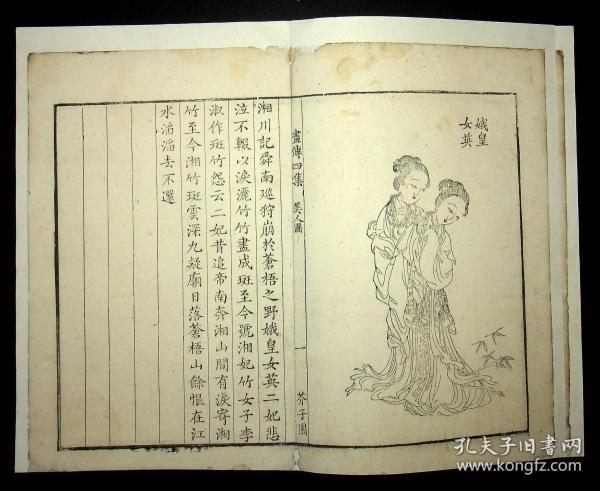 娥皇
女英
畫傳四集 美人圖 一 芥子園
湘川記舜南巡狩崩於蒼梧之野娥皇女英二妃悲
泣不輟以淚灑竹竹盡成斑至今號湘妃竹女子李
淑作斑竹怨云二妃昔追帝南奔湘山間有淚寄湘
竹至今湘竹斑雲深九疑廟日落蒼梧山餘恨在江
水滔滔去不還
孔夫子旧书网
www.kongfz.com